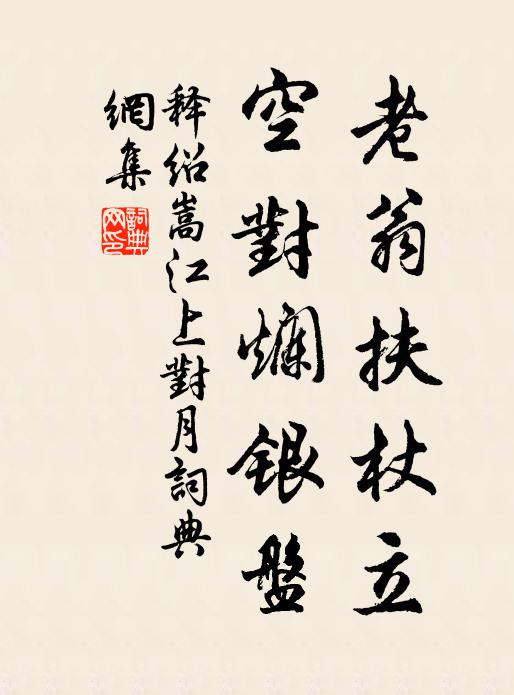 老翁扶杖立
空對爛銀盤
释绍嵩江上對月詞典
網集
詞典網印